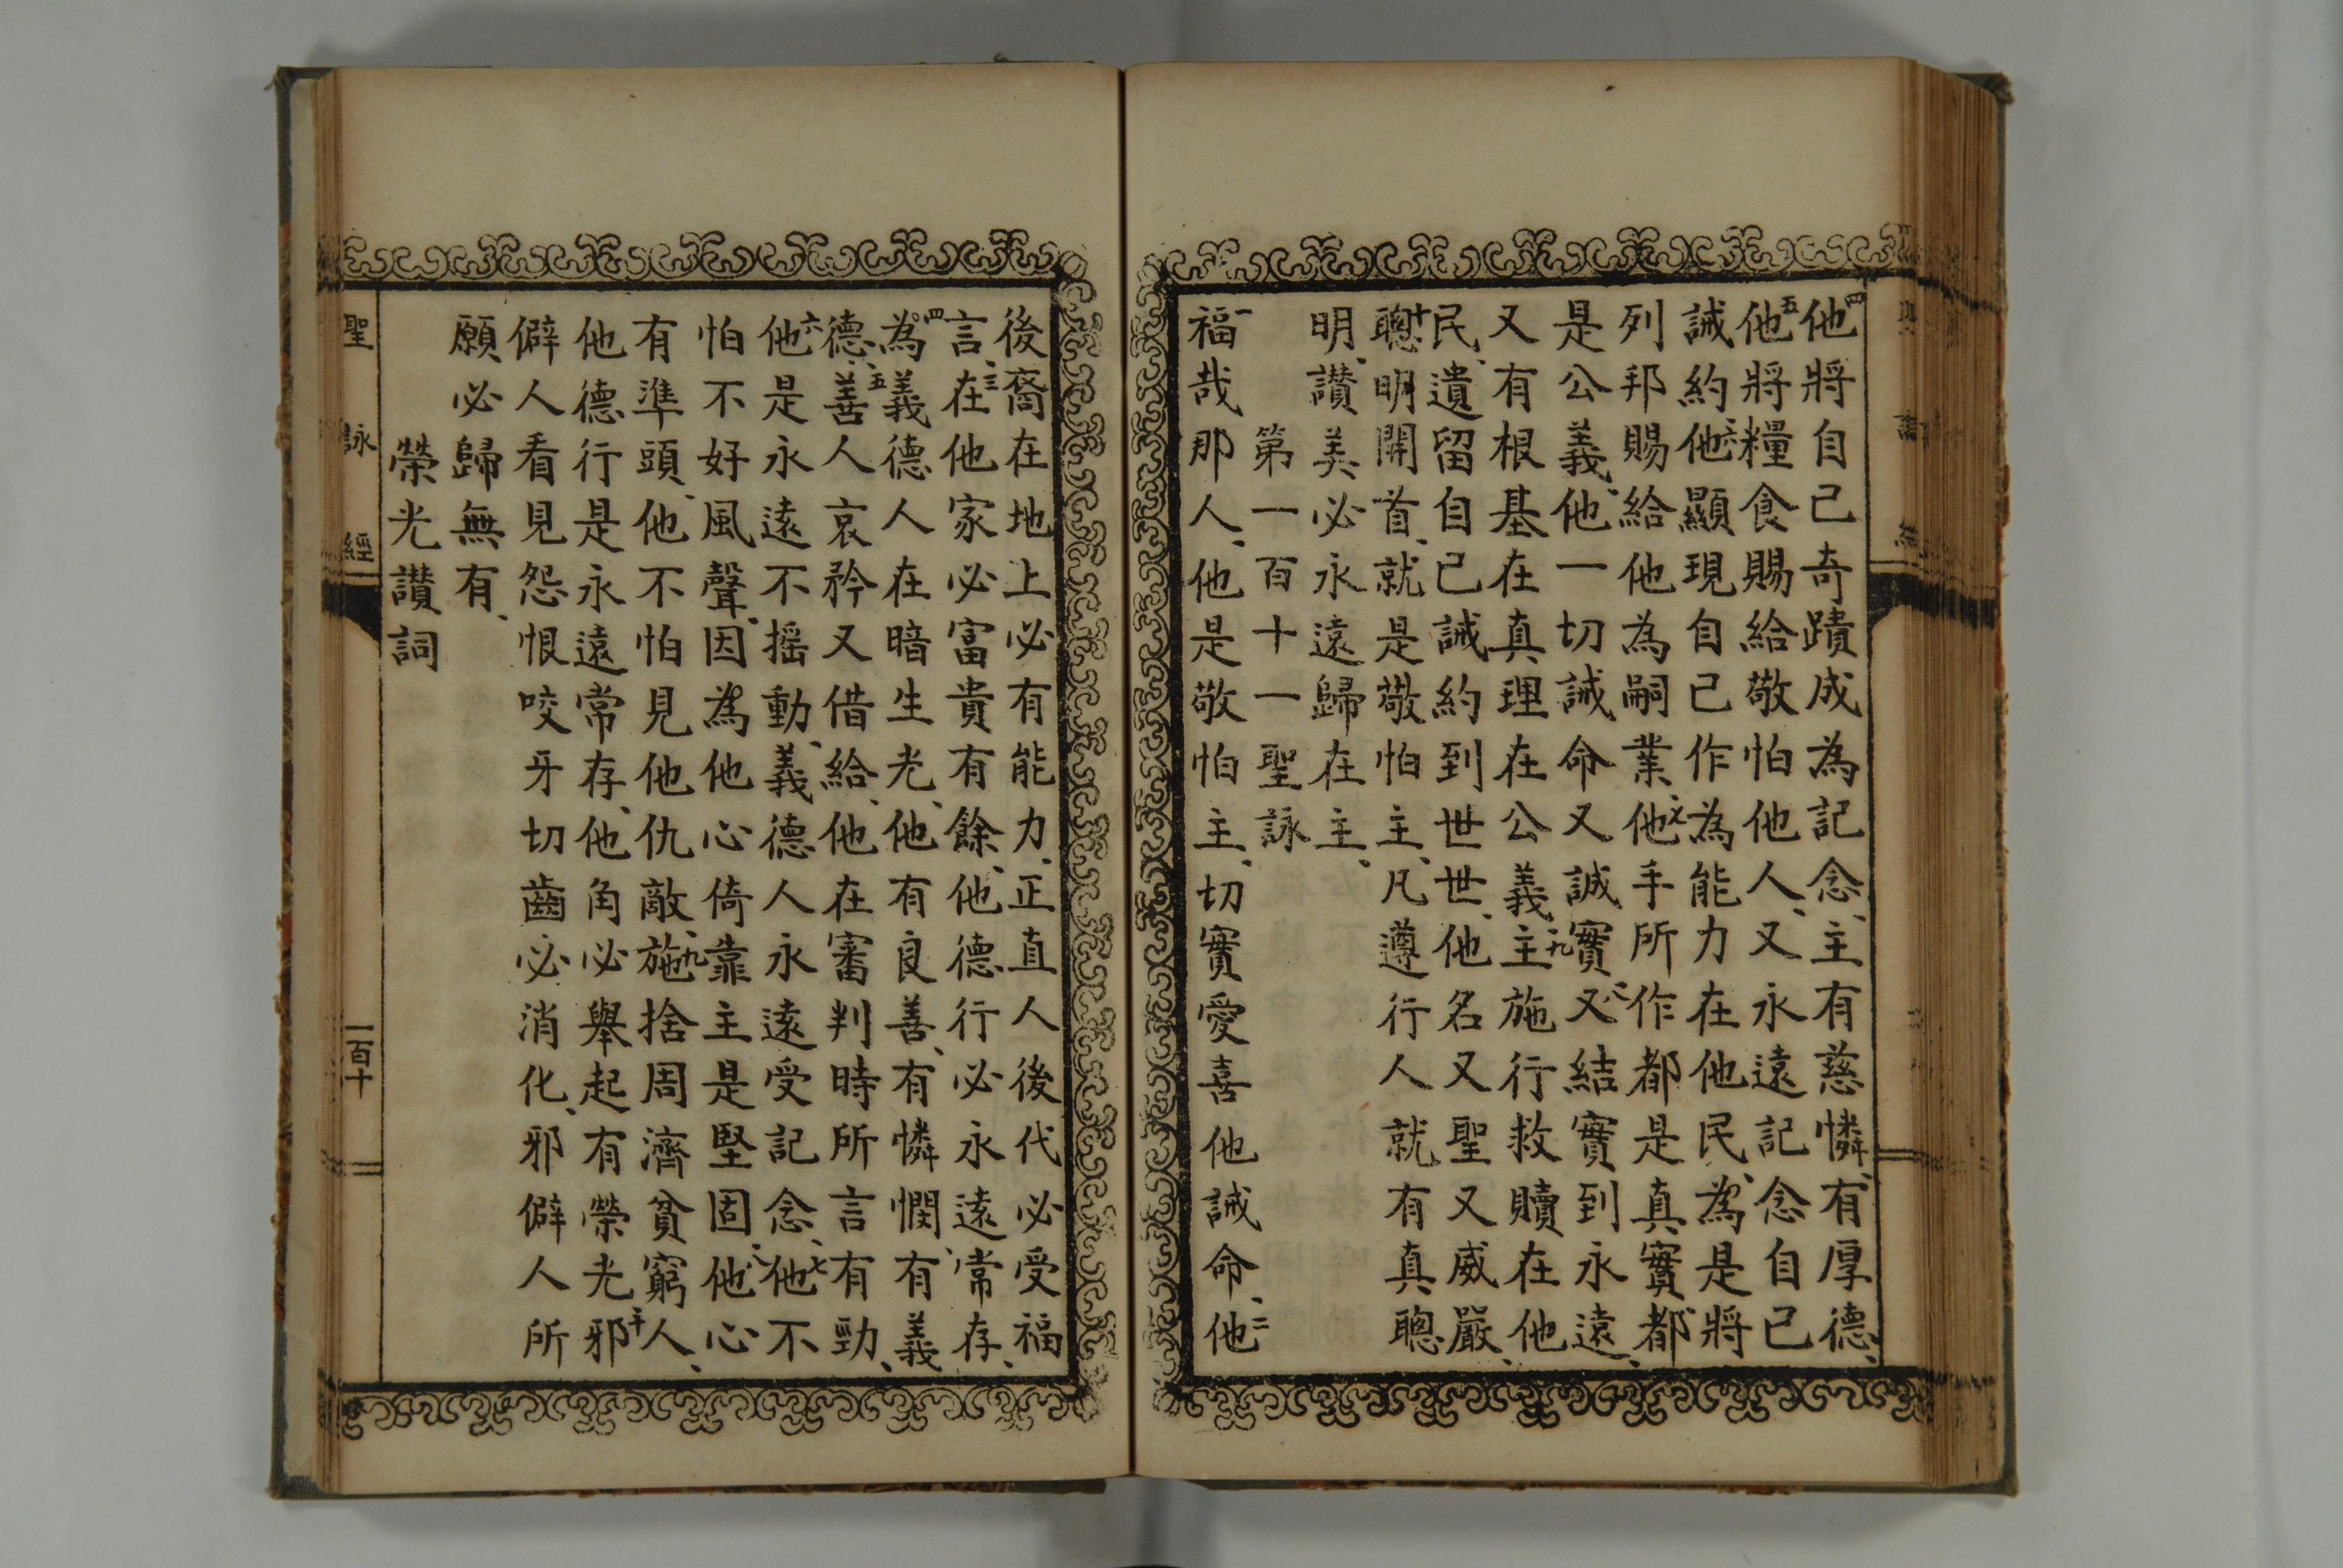 四他將自己奇蹟成為記念、主有慈憐、有厚德、
五他將糧食賜給敬怕他人、又永遠記念自己
誡約、六他顯現自己作為能力在他民、為是將
列邦賜給他為嗣業、七他手所作都是真實、都
是公義、他一切誡命又誠實、八又結實到永遠、
又有根基在真理在公義、九主施行救贖在他
民、遺留自己誡約到世世、他名又聖又威嚴、
十聰明開首、就是敬怕主、凡遵行人就有真聰
明、讃美必永遠歸在主、
第一百十一聖詠
一福哉那人、他是敬怕主、切實愛喜他誡命、二他
後裔在地上必有能力、正直人後代必受福
言、三在他家必富貴有餘、他德行必永遠常存、
四為義德人在暗生光、他有良善、有憐憫、有義
德、五善人哀矜又借給、他在審判時所言有勁、
六他是永遠不搖動、義德人永遠受記念、七他不
怕不好風聲、因為他心倚靠主是堅固、八他心
有準頭、他不怕見他仇敵、九施捨周濟貧窮人、
他德行是永遠常存、他角必舉起有榮光、十邪
僻人看見怨恨咬牙切齒必消化、邪僻人所
願必歸無有、
榮光讃詞
聖詠經
一百十